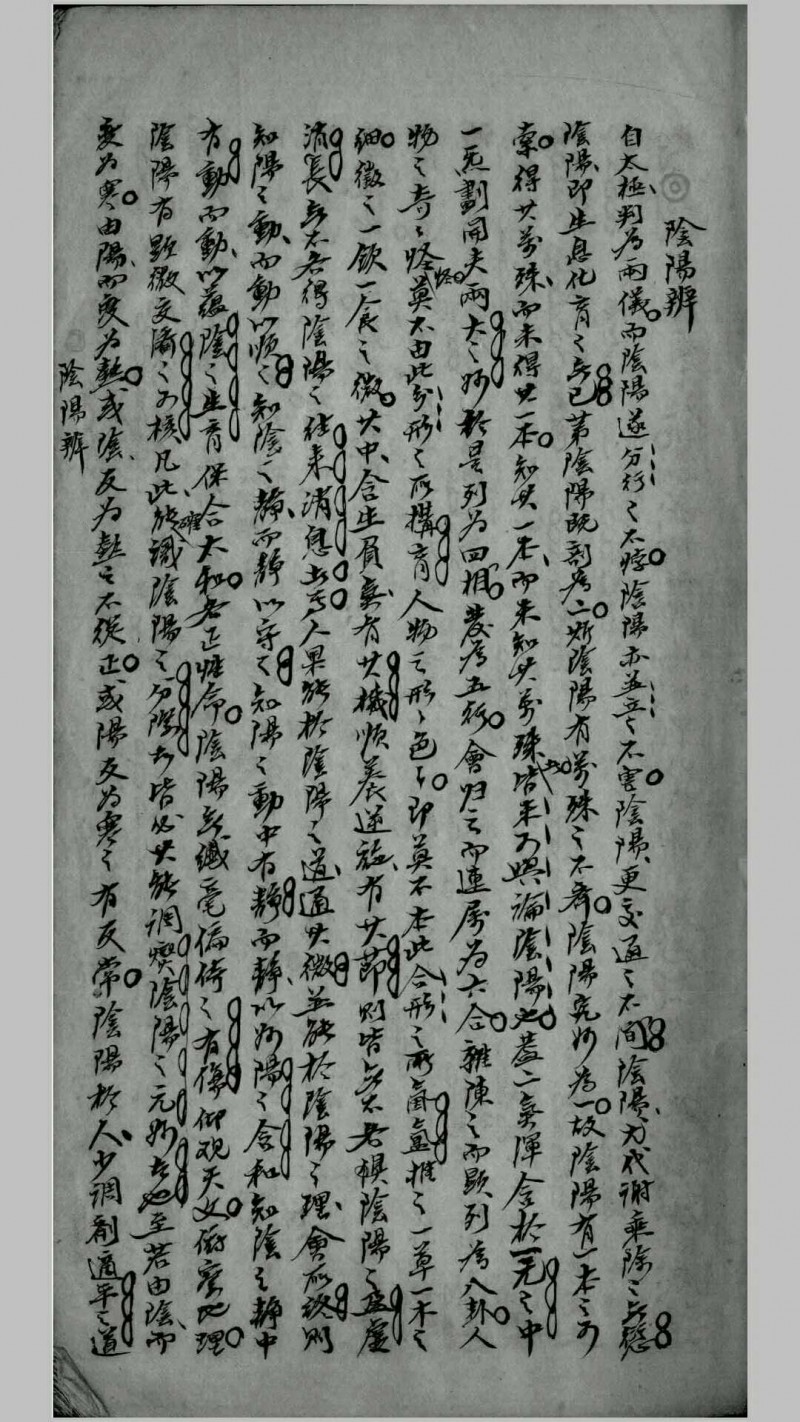 陰陽辨
自太極判為兩儀而陰陽遂分行之不悖陰陽亦並立之不害陰陽更交通之不間陰陽方代謝乘除之無愆
陰陽即生息化育之無已第陰陽既剖為二斯陰陽有萬殊之不齊陰陽究妙為一故陰陽有一本之可
索得其萬殊而未得其一本知其一本而未知其萬殊皆未可與論陰陽也蓋二氣渾含於一元之中
一炁劃開夫兩大之妙於是列為四相發為五行會归之而連屬為六合雜陳之而顯列為八卦人
物之奇之怪莫不由此分形之所搆育人物之形之色即莫不本此合形之所氤氳推之一草一木之
細微之一飲一食之微其中含生負氣有其機順養逆施有其節則皆無不若賴陰陽之盈虛
消長無不若得陰陽之往來消息焉人果能於陰陽之道通其微並能於陰陽之理會所終則
知陽之動而動以順之知陰之靜而靜以守之知陽之動中有靜而靜以妙陽之含和知陰之靜中
有動而動以蘊陰之生育保合太和各正性命陰陽無纖毫偏倚之有傷仰觀天文俯察地理
陰陽有顯微交濟之可核凡此能確識陰陽之分際者皆必其能調燮陰陽之元妙者也至若由陰而
變為寒由陽而變為熱或陰反為熱之不從正或陽反為寒之有反常陰陽於人少調劑適平之道
陰陽辨